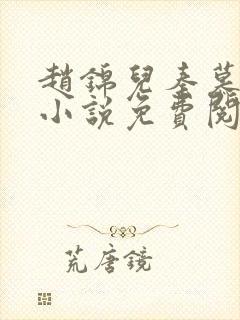 趙錦兒秦慕
小說免費閱
荒唐鏡